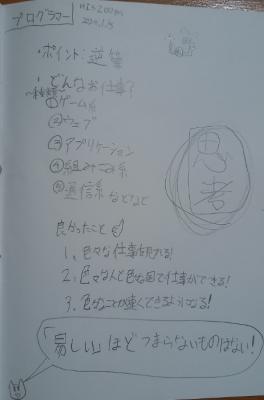 プログラマー
・ポイント: 逆算
・どんなお仕事?
①ゲーム系
②ウェブ
③アプリケーション
④組みこみ系
⑤通信系などなど
思考
良かったこと
1、色々な仕事を見れる!
2、色々な人と色々な国で仕事ができる!
3、色々なことが速くできるようになる!
「易しい」ほどつまらないものはない!